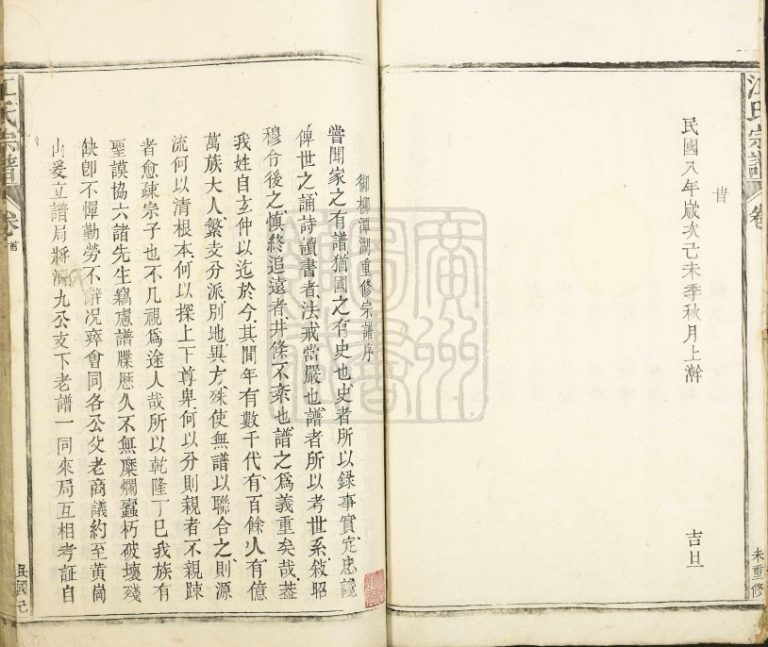 江氏宗譜
卷
昔
民國八年歲次己未季秋月上澣
吉旦
未重修
御柳潭湖重修宗譜序
嘗聞家之有譜猶國之有史也史者所以錄事實定忠讒
俾世之誦詩讀書者法戒當嚴也譜者所以考世系敘昭
穆令後之慎終追遠者井條不紊也譜之為義重矣哉蓋
我姓自玄仲以迄於今其間年有數千代有百餘人有億
萬族大人繁支分派別地異方殊使無譜以聯合之則源
流何以清根本何以探上下尊卑何以分則親者不親踈
者愈疎宗子也不几視爲途人哉所以乾隆丁巳我族有
聖謨協六諸先生竊慮譜牒歷久不無糜爛蠹朽破壞殘
缺卽不憚勤勞不辭况瘁會同各公父老商議約至黃崗
山爰立譜局將濱九公支下老譜一同來局互相考証自
江氏宗譜
卷首
民國己